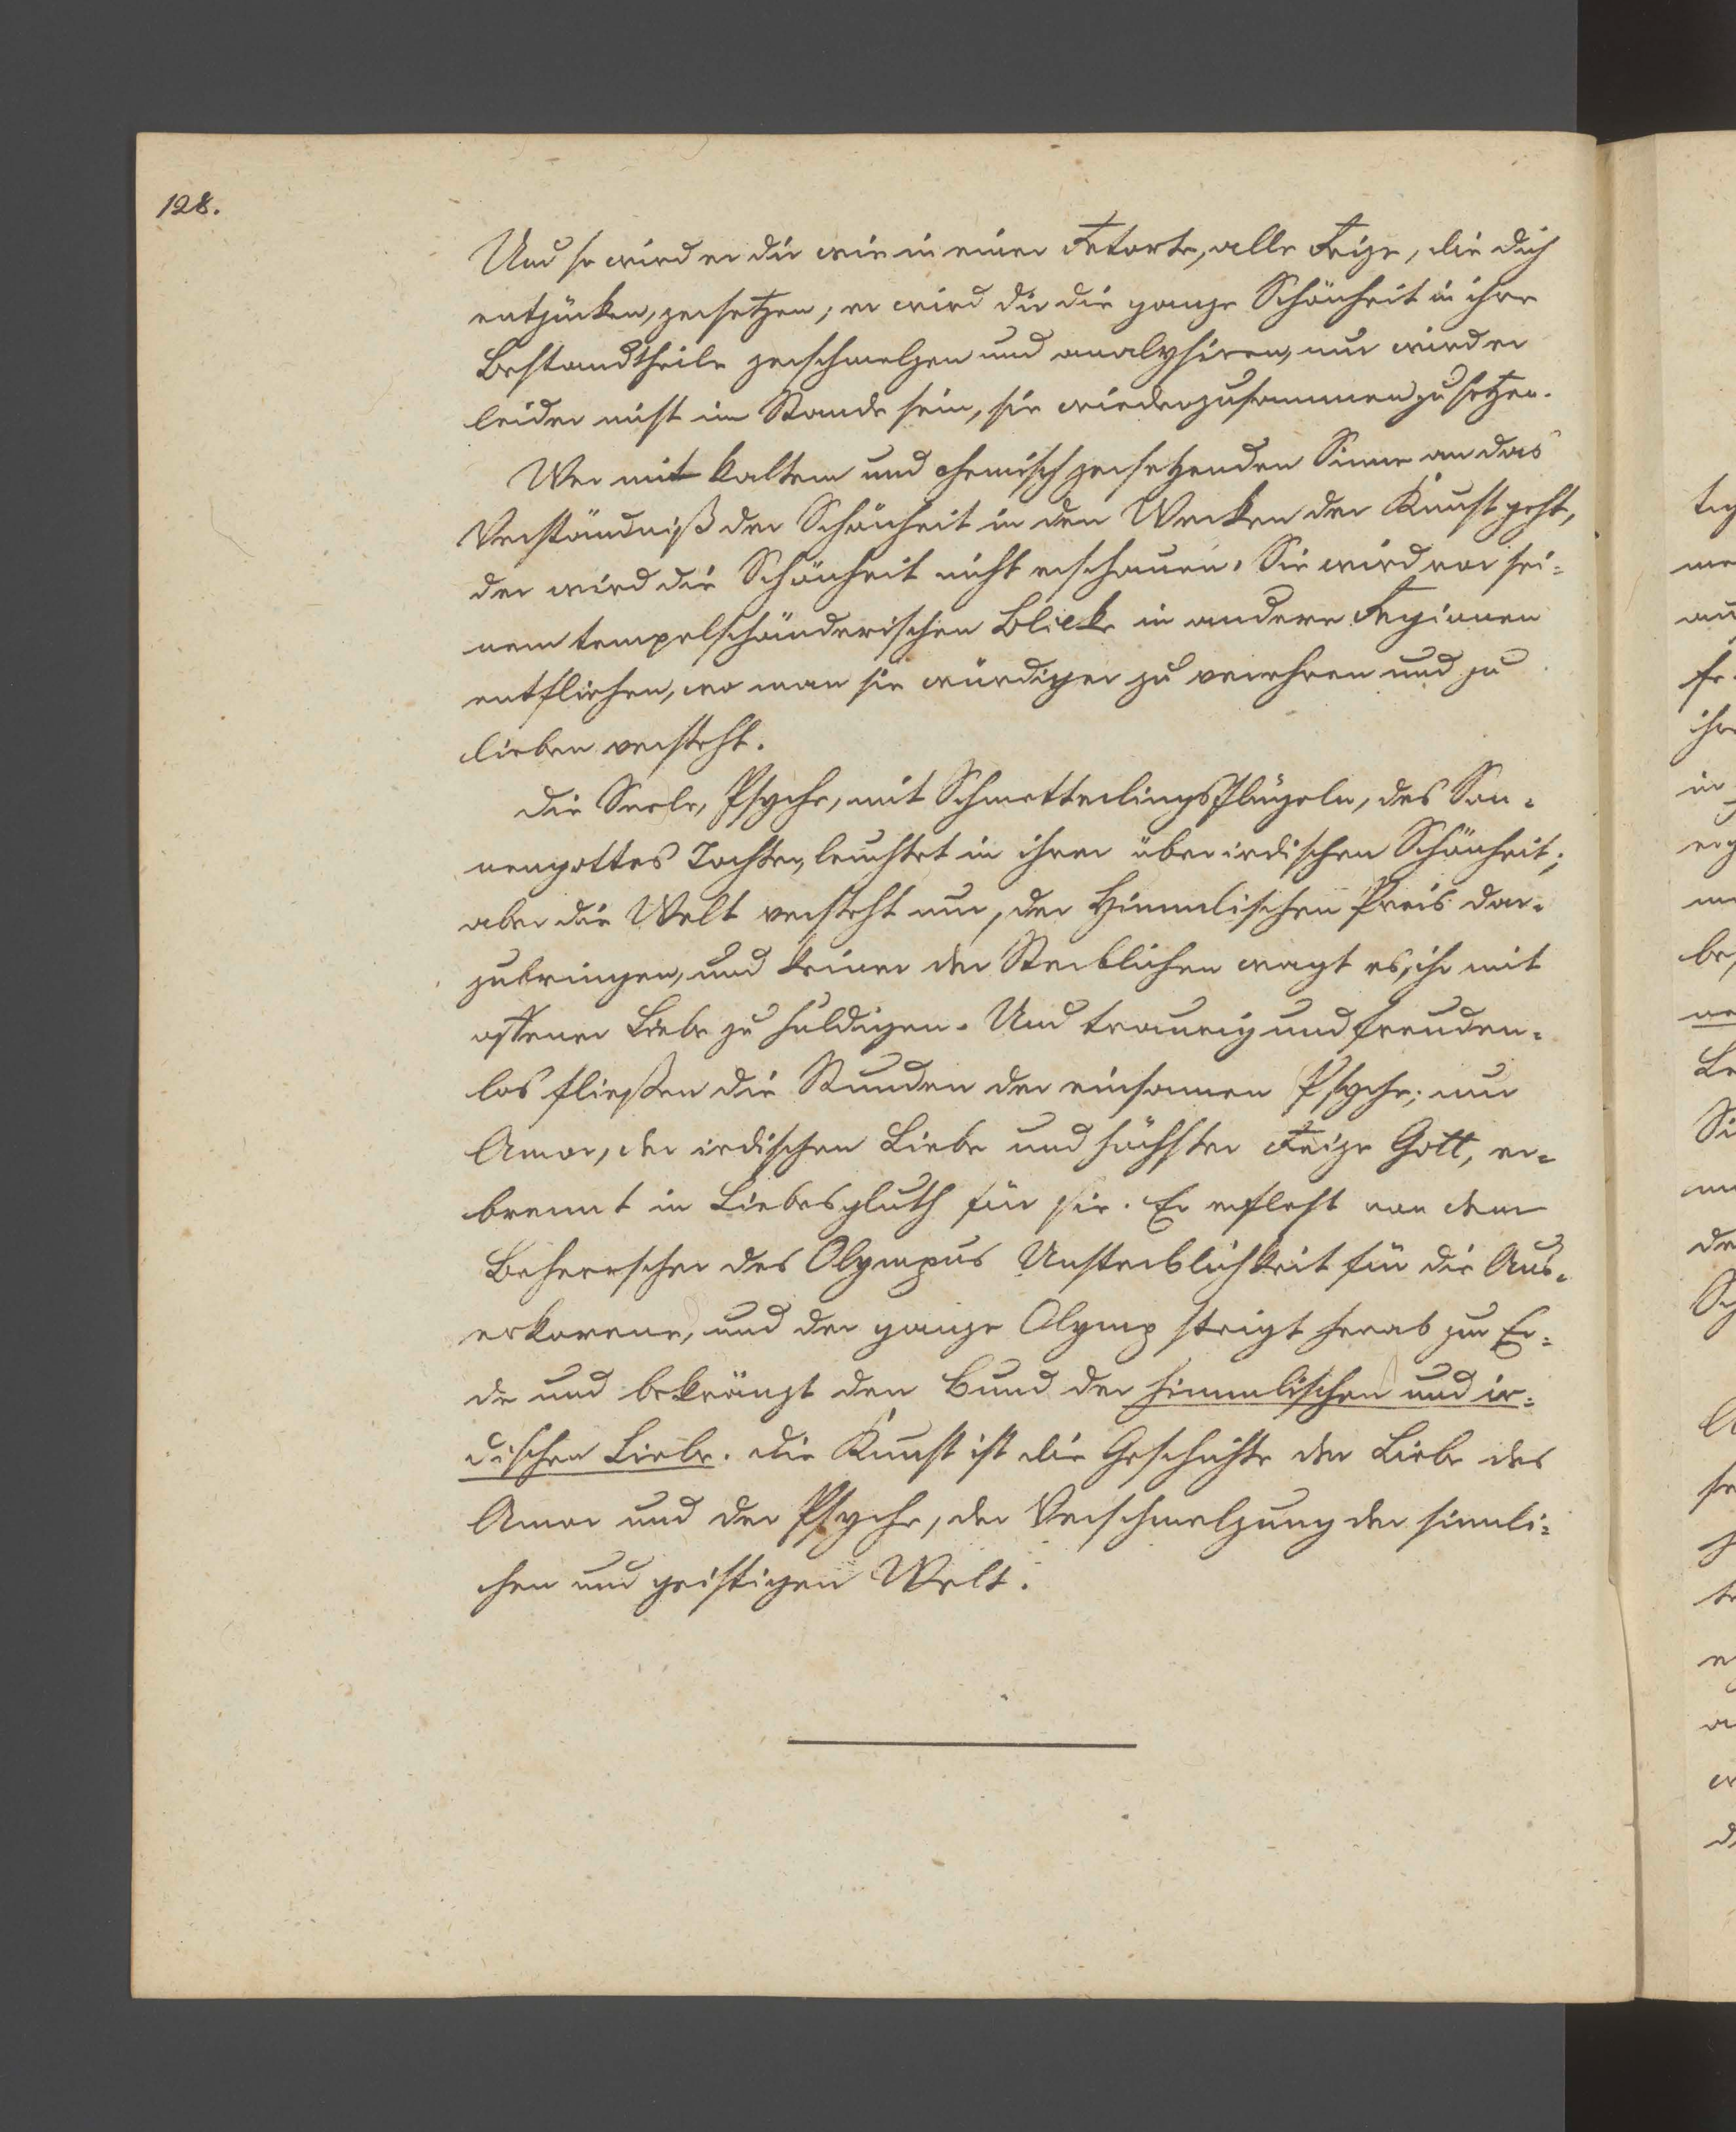 128.
Und so wird er dir wie in einer Retorte, alle Reize, die dich
entzücken, zersetzen; er wird dir die ganze Schönheit in ihre
Bestandtheile zerschmelzen und analysiren, nur wird er
leider nicht im Stande sein, sie wiederzusammenzusetzen.
Wer mit kaltem und chemisch zersetzenden Sinne an das
Verständniß der Schönheit in den Werken der Kunst geht,
der wird die Schönheit nicht erschauen. Sie wird vor sei-
nem tempelschänderischen Blicke in andere Regionen
entfliehen, wo man sie würdiger zu verehren und zu
lieben versteht.
Die Seele, Psyche, mit Schmetterlingsflügeln, des Son-
nengottes Tochter, leuchtet in ihrer überirdischen Schönheit;
aber die Welt versteht nur, der Himmlischen Preis dar-
zubringen, und keiner der Sterblichen wagt es, ihr mit
offener Liebe zu huldigen. Und traurig und freuden-
los fließen die Stunden der einsamen Psyche; nur
Amor, der irdischen Liebe und höchster Reize Gott, er-
brennt in Liebesgluth für sie. Er erfleht von dem
Beherrscher des Olympus Unsterblichkeit für die Aus-
erkorene, und der ganze Olymp steigt herab zur Er-
de und bekränzt den Bund der himmlischen und ir-
dischen Liebe. Die Kunst ist die Geschichte der Liebe des
Amor und der Psyche, der Verschmelzung der sinnli-
chen und geistigen Welt.